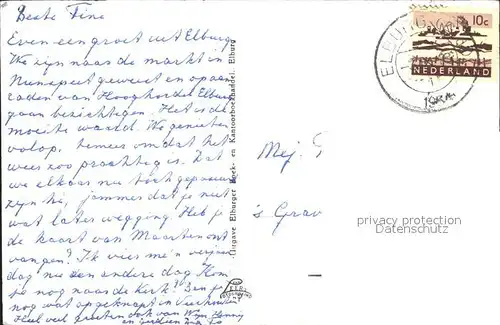 Beste Fine
Even een groet uit Elburg
We zijn naar de markt in
Nunspeet geweest en op aan
raden van Hooghordel Elburg
gaan bezichtigen. Het is de
moeite waard. We genieten
volop, temeer omdat het
weer zoo prachtig is. Dat
we elkaar nu toch
zijn hè, jammer dat je niet
wat later wegging. Heb je
de kaart van Maarten ont
vangen? Ik vier m'n verjaar
dag nu den andere dag Kom
je nog naar de kerk? Ben je
nog wat opgeknapt in
Heel veel groeten ook van Wim, Henny
en
Uitgave Elburger Boek- en Kantoorboekhandel. Elburg
ELBURG
10c
NEDERLAND
Mej.
's Grav
privacy protection
Datenschutz